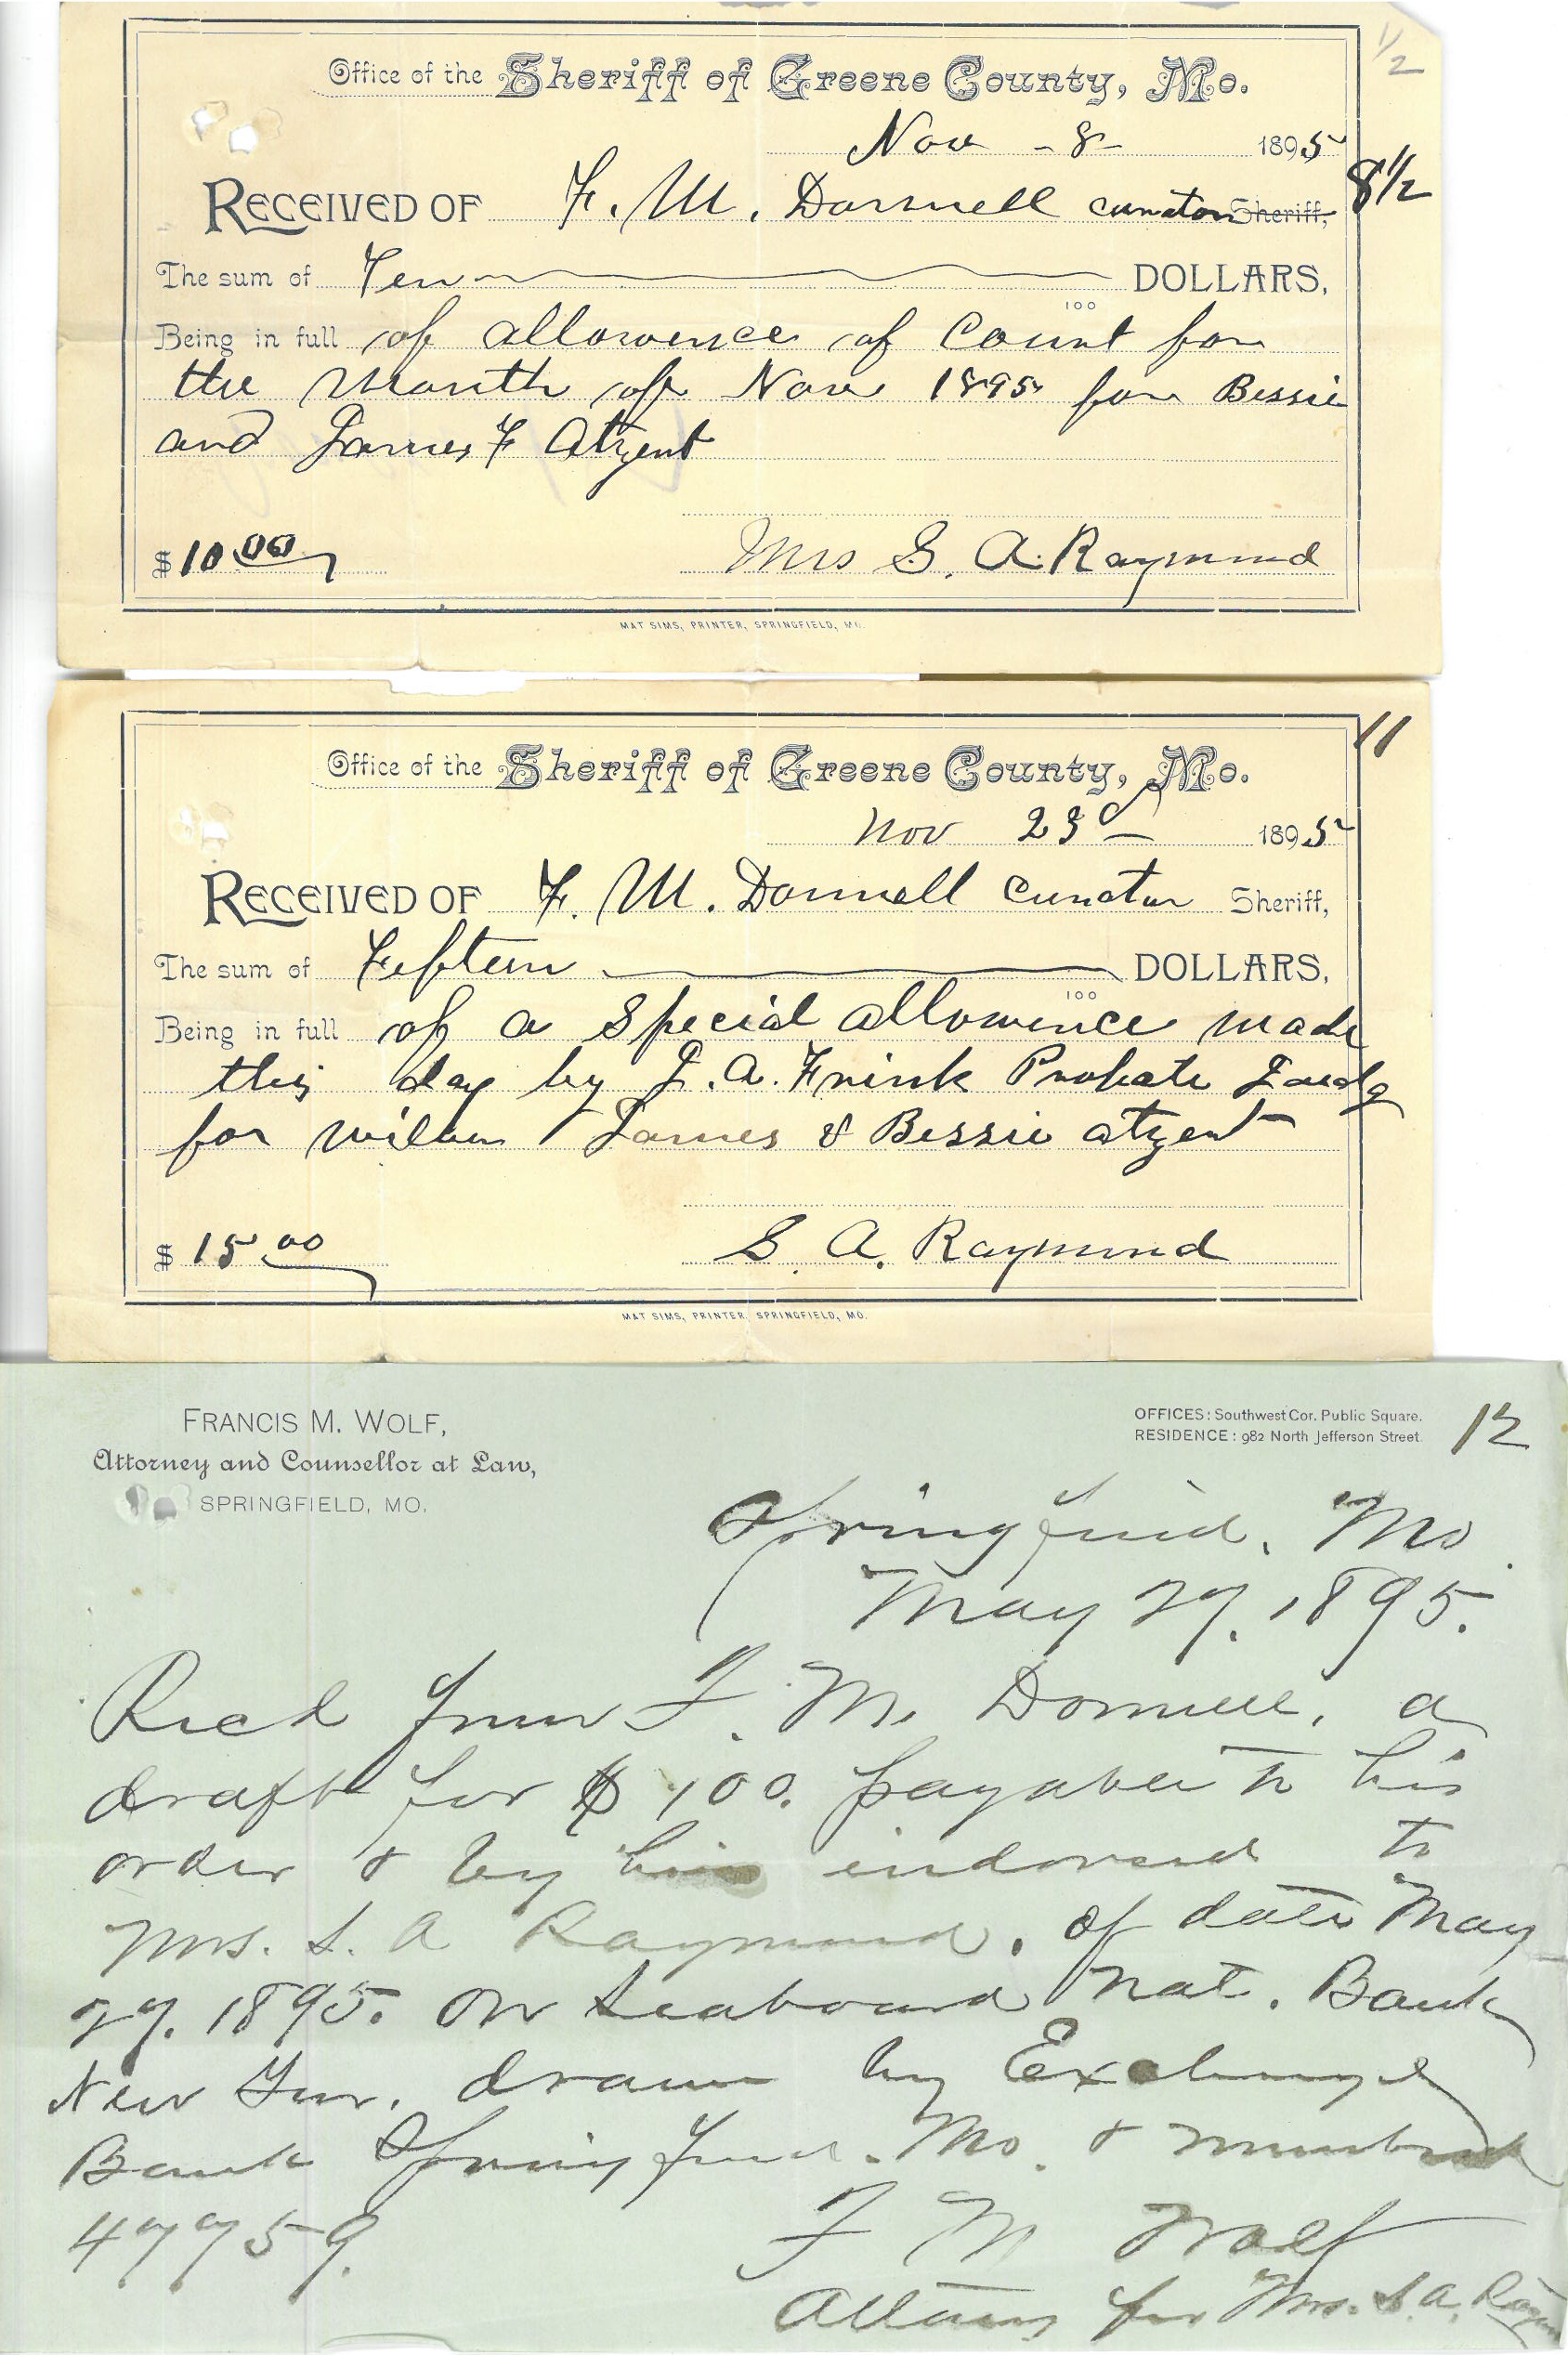 1/2
Office of the Sheriff of Greene County, Mo.
Nov - 8 - 1895
8 1/2
RECEIVED OF F. M. Donnell curator Sheriff,
The sum of Ten DOLLARS,
100
Being in full of allowence of Court for
the Month of Nov 1895 for Bessie
and James F Atzent
$ 10.00 Mrs S. A. Raymond
MAT SIMS, PRINTER, SPRINGFIELD, MO.
11
Office of the Sheriff of Greene County, Mo.
Nov 23d 1895
RECEIVED OF F. M. Donnell curator Sheriff,
The sum of Fifteen DOLLARS,
100
Being in full of a special allowence made
this day by J. A. Frink Probate Judg
for James & Bessie atzent
$ 15.00 S. A. Raymond
MAT SIMS, PRINTER, SPRINGFIELD, MO.
FRANCIS M. WOLF,
Attorney and Counsellor at Law,
SPRINGFIELD, MO.
OFFICES: Southwest Cor. Public Square.
RESIDENCE: 982 North Jefferson Street.
12
Springfield, Mo.
May 27, 1895.
Recd from F. M. Donnell, a
draft for $100. payable to his
order & by him endorsed to
Mrs. S. A Raymond, of date May
27, 1895. on Seaboard Nat. Bank
New York, drawn by Exchange
Bank Springfield. Mo. & numbered
47759.
F M Wolf
Attorney for Mrs. S. A. Raym